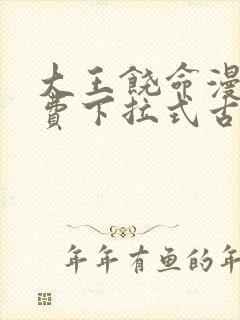 大王饶命漫
费下拉式古
年年有鱼的年